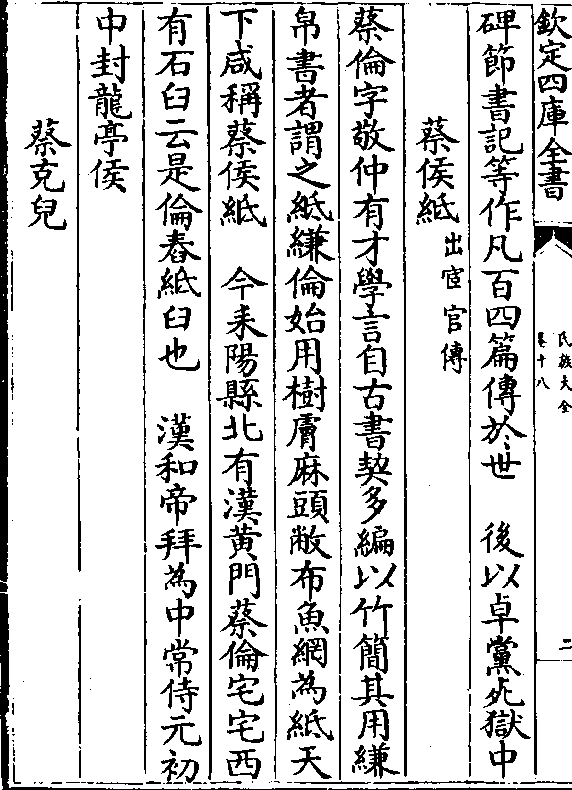 欽定四庫全書
氏族大全
卷十八
二
碑節書記等作凡百四篇傳於世　後以卓黨死獄中
蔡侯紙出宦官傳
蔡倫字敬仲有才學言自古書契多編以竹簡其用縑
帛書者謂之紙縑倫始用樹膚麻頭敝布魚網為紙天
下咸稱蔡侯紙　今耒陽縣北有漢黄門蔡倫宅宅西
有石臼云是倫舂紙臼也　漢和帝拜為中常侍元初
中封龍亭侯
蔡克兒